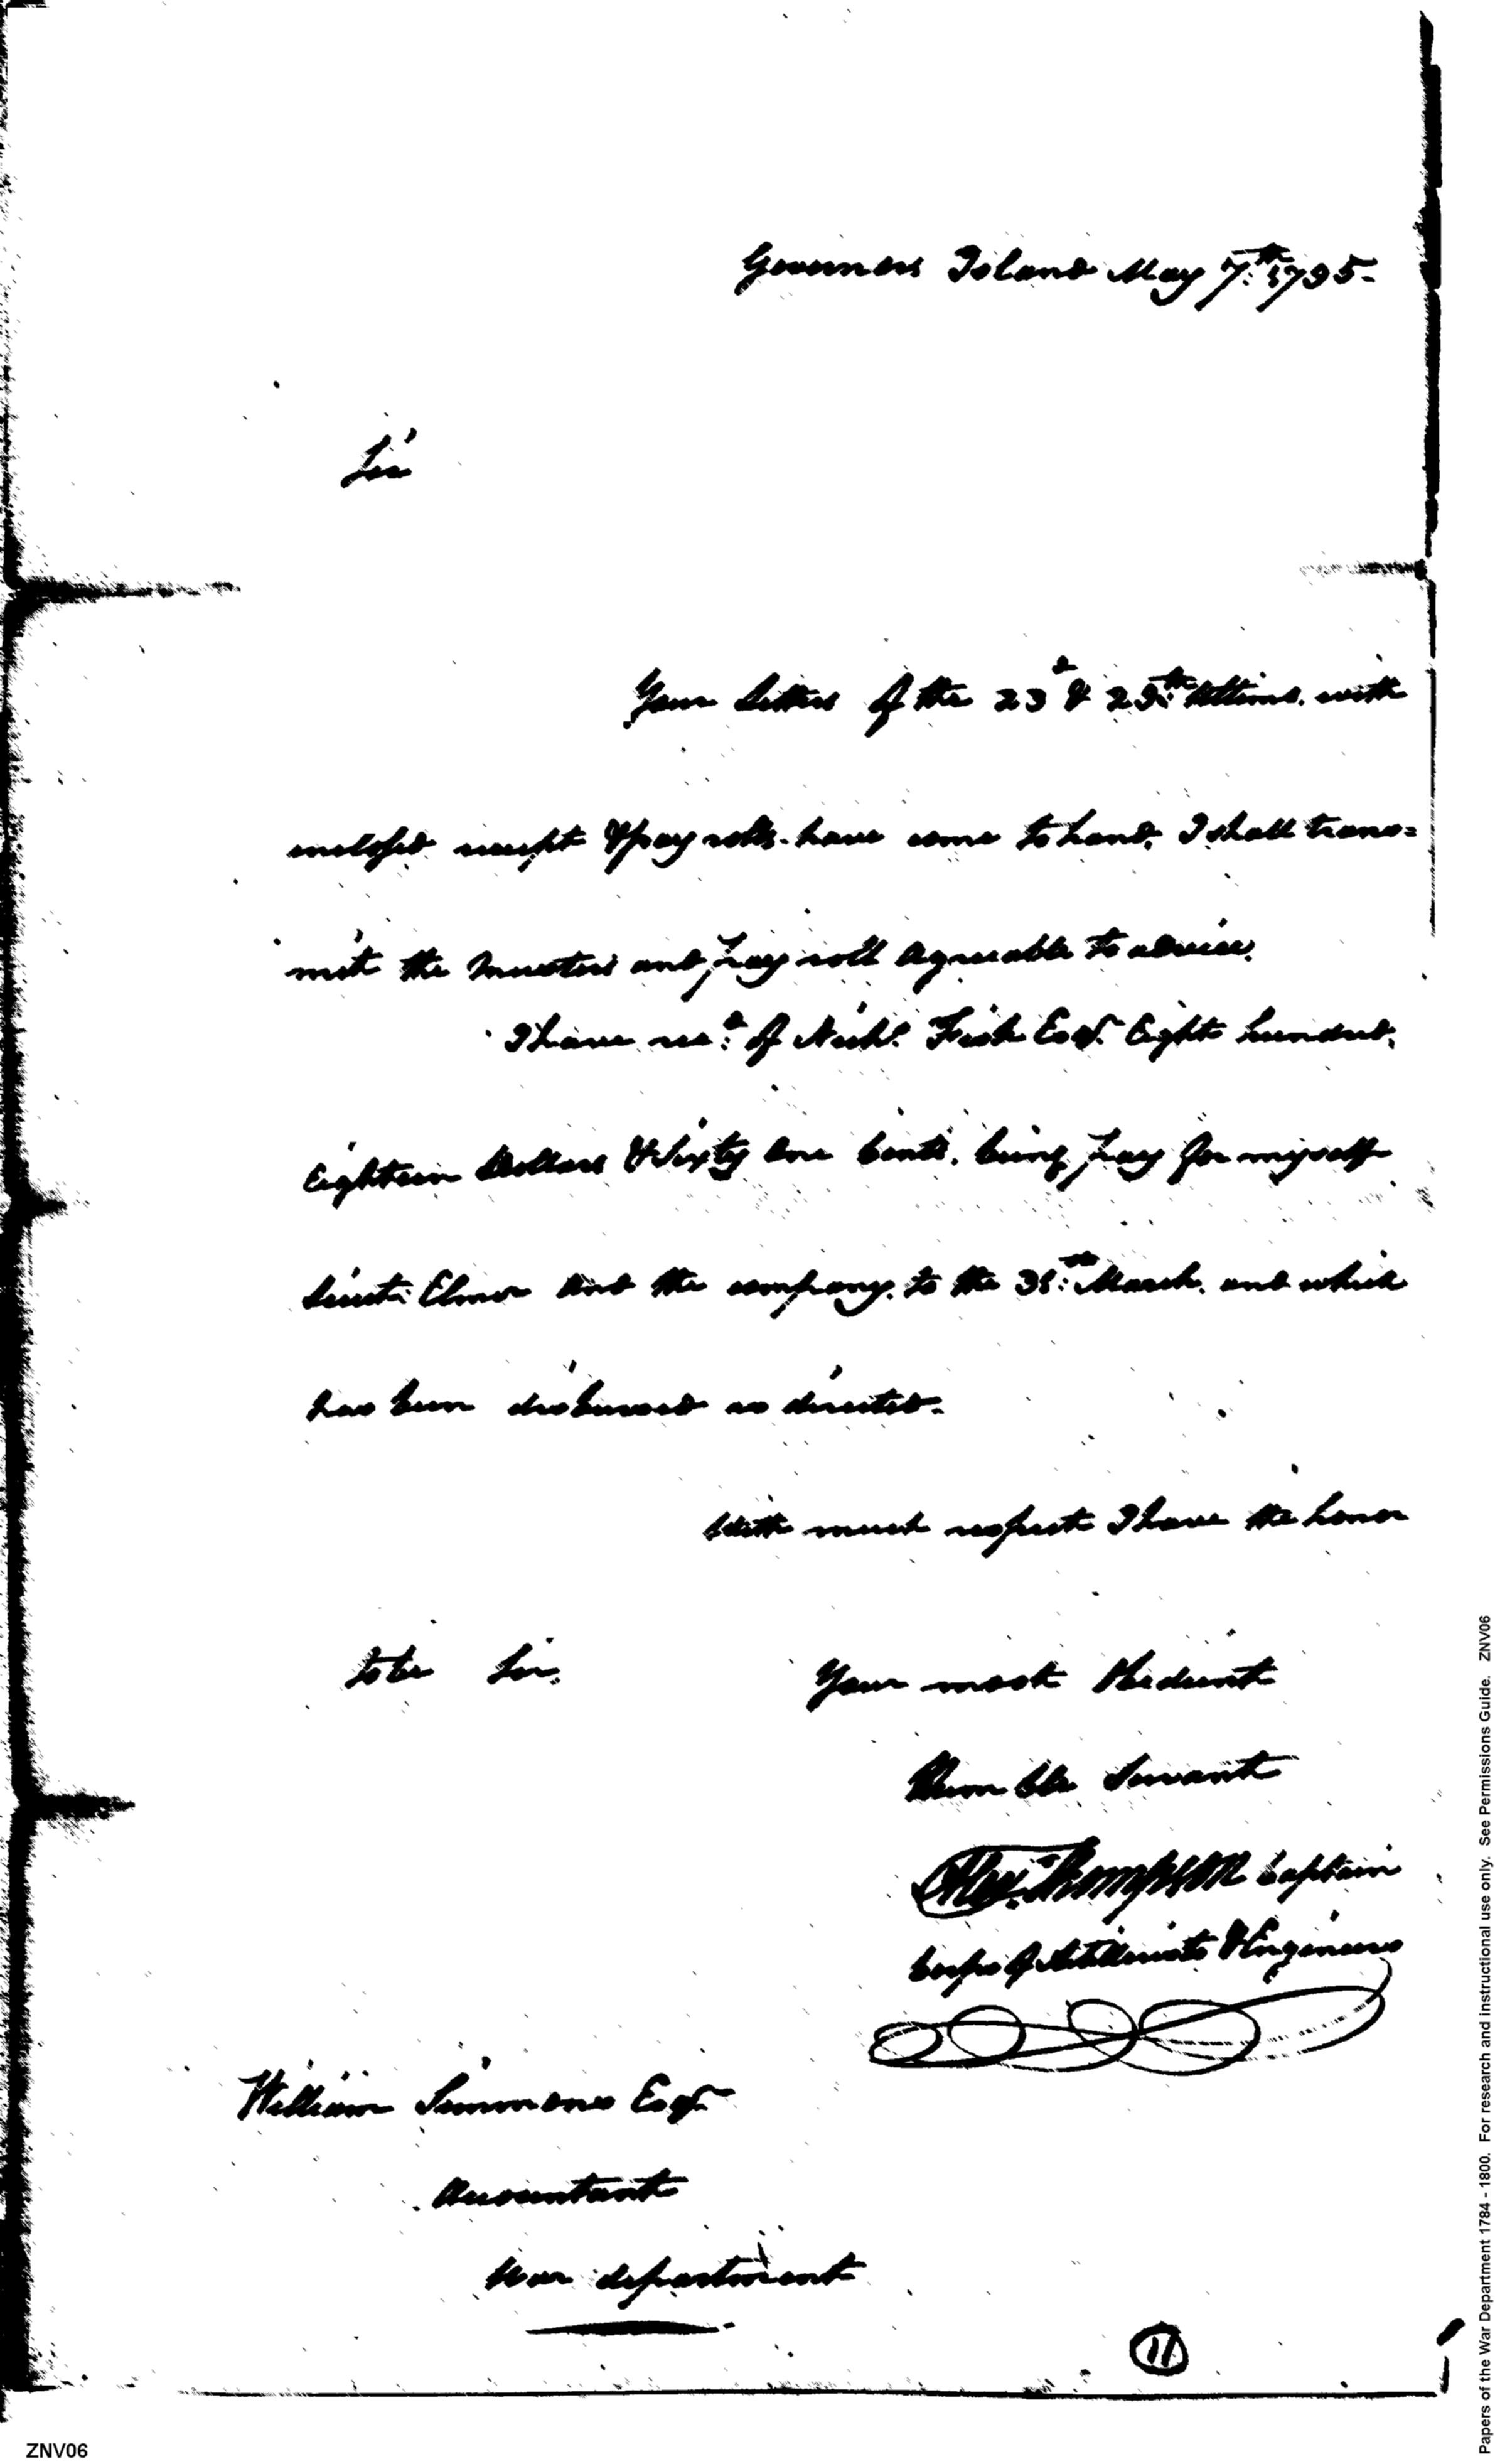 Governors Island May 7th: 1795.
Sir
Your Letters of the 23d & 29th: Ultimo. with
inclosed receipt & pay rolls. have come to hand. I shall trans=
mit the Musters and pay roll agreeable to advice.
I have recd: of Nichs. Fish Esqr. Eight hundred,
Eighteen Dollars & Sixty One Cents, being pay for myself
Lieut: Elmer and the company, to the 31:st March. and which
has been disbursed as directed.
With much respect I have the honor
to be Sir,
Your most Obedient
Humble Servant
Alexr. Thompson Captain
Corps of Artillerists & Engineers
William Simmons Esqr
Accountant
War department
11
ZNV06
Papers of the War Department 1784 - 1800. For research and instructional use only. See Permissions Guide. ZNV06